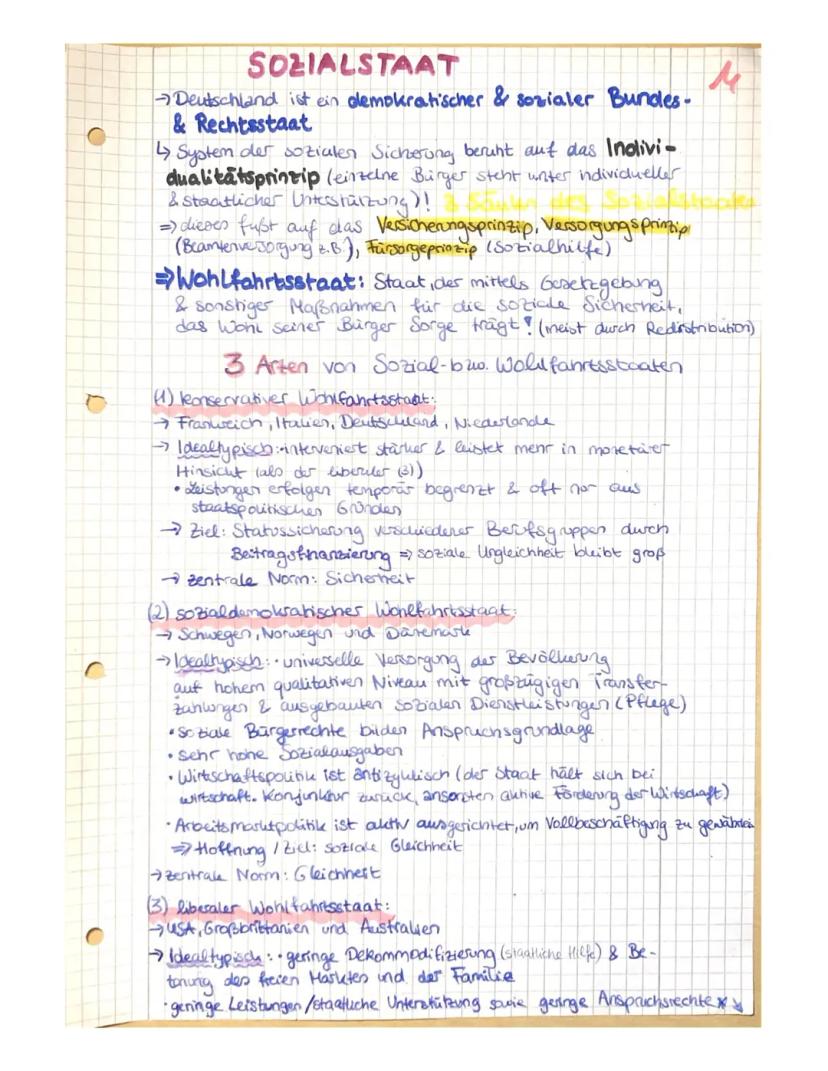 SOZIALSTAAT
→ Deutschland ist ein demokratischer & sozialer Bundes-
& Rechtsstaat
↳ System der sozialen Sicherung beruht auf das Indivi-
dualitätsprinzip (einzelne Bürger steht unter individueller
& staatlicher Unterstützung)! 3 Säulen des Sozialstaates
⇒ dieses fußt auf das Versicherungsprinzip, Versorgungsprinzip
(Beamtenversorgung z.B.), Fürsorgeprinzip (Sozialhilfe)
⇒ Wohlfahrtsstaat: Staat, der mittels Gesetzgebung
& sonstiger Maßnahmen für die soziale Sicherheit,
das Wohl seiner Bürger Sorge trägt! (meist durch Redistribution)
3 Arten von Sozial- bzw. Wohlfahrtsstaaten
(1) konservativer Wohlfahrtsstaat:
→ Frankreich, Italien, Deutschland, Niederlande
→ Idealtypisch: • interveniert stärker & leistet mehr in monetärer
Hinsicht (als der liberaler (3))
• Leistungen erfolgen temporär begrenzt & oft nor aus
staatspolitischen Gründen
→ Ziel: Statussicherung verschiedener Berufsgruppen durch
Beitragsfinanzierung ⇒ soziale Ungleichheit bleibt groß
→ zentrale Norm: Sicherheit
(2) sozialdemokratischer Wohlfahrtsstaat:
→ Schwegen, Norwegen und Dänemark
→ Idealtypisch: • universelle Versorgung der Bevölkerung
auf hohem qualitativen Niveau mit großzügigen Transfer-
zahlungen & ausgebauten sozialen Dienstleistungen (Pflege)
• soziale Bürgerrechte bilden Anspruchsgrundlage
• sehr hohe Sozialausgaben
• Wirtschaftspolitik ist antizyklisch (der Staat hält sich bei
wirtschaft. Konjunktur zurück, ansonsten aktive Förderung der Wirtschaft)
• Arbeitsmarktpolitik ist aktiv ausgerichtet, um Vollbeschäftigung zu gewähren
⇒ Hoffnung / Ziel: soziale Gleichheit
→ zentrale Norm: Gleichheit
(3) liberaler Wohlfahrtsstaat:
→ USA, Großbrittanien und Australien
→ Idealtypisch: • geringe Dekommodifizierung (staatliche Hilfe) & Be-
tonung des freien Marktes und der Familie
• geringe Leistungen / staatliche Unterstützung sowie geringe Anspruchsrechte